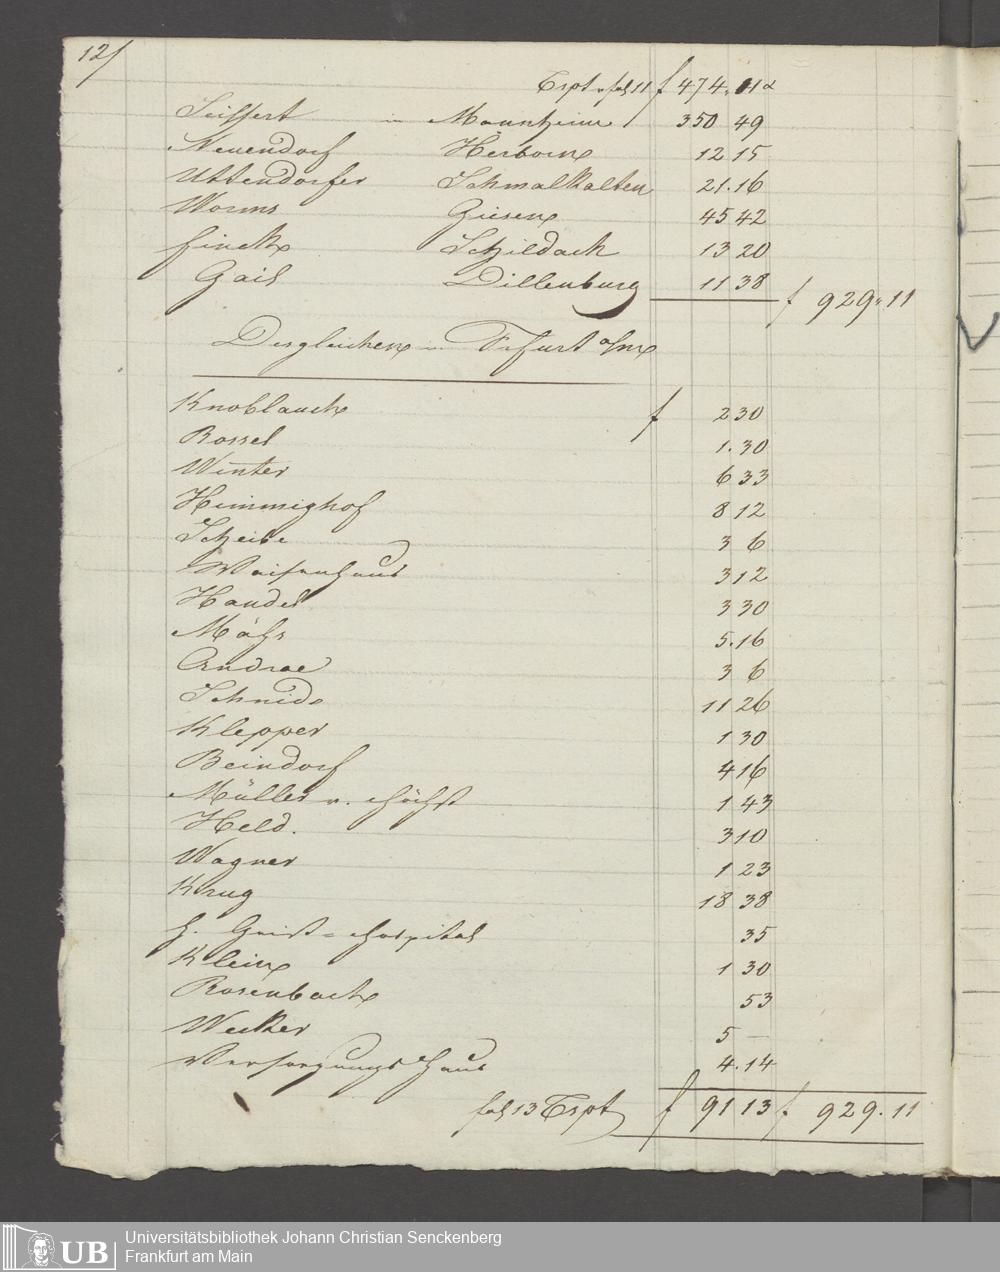 12/
Trspt v fol 11 f 474. 11
Seiffert in Mannheim 350 49
Neuendorf Herborn 12 15
Uttendorfer Schmalkalten 21. 16
Worms Giesen 45 42
Finck Schildach 13 20
Gail Dillenburg 11 38 f 929. 11
Desgleichen in Frfurt a/m
Knoblauch f 2 30
Rossel 1. 30
Winter 6 33
Heimmighof 8 12
Scheibe 3 6
Waisenhaus 3 12
Handel 3 30
Möhs 5. 16
Andrae 3 6
Schmidt 11 26
Klepper 1 30
Beindorf 4 16
Müller v. Höchst 1 43
Held. 3 10
Wagner 1 23
Krug 18 38
h. Geist=Hospital 35
Klein 1 30
Rosenbach 53
Wecker 5 —
Versorgungshaus 4. 14
fol 13 Trspt f 91 13 f 929. 11
UB
Universitätsbibliothek Johann Christian Senckenberg
Frankfurt am Main